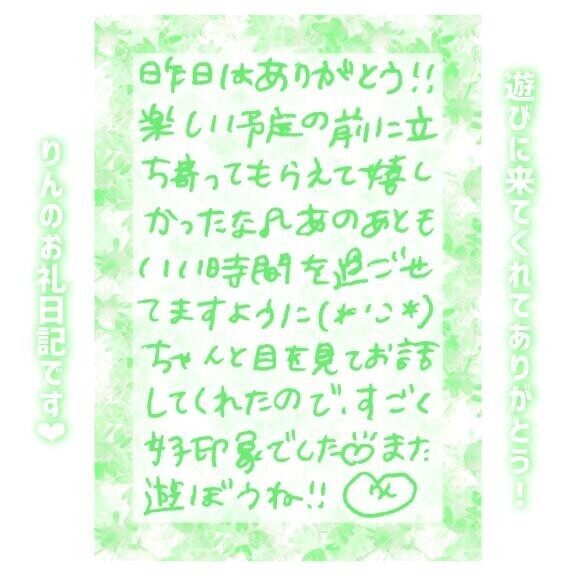 遊びに来てくれてありがとう！
昨日はありがとう!!
楽しい予定の前に立
ち寄ってもらえて嬉し
かったな♫あのあとも
いい時間を過ごせ
てますように(*'▽'*)
ちゃんと目を見てお話
してくれたので、すごく
好印象でした♡また
遊ぼうね!!
りんのお礼日記です❤